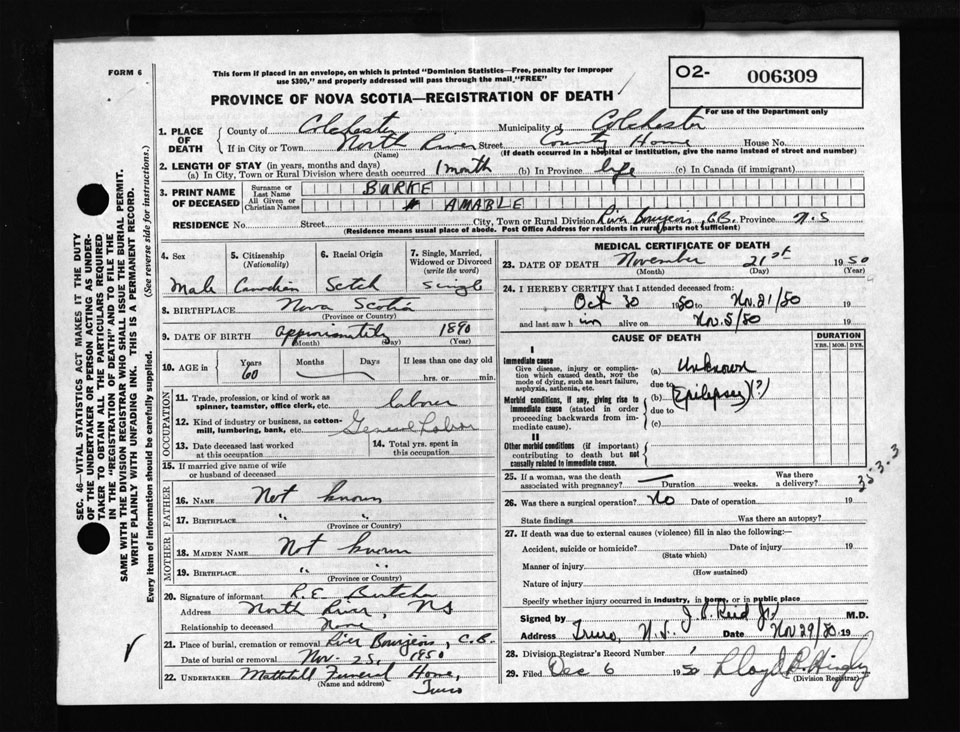 FORM 6
This form if placed in an envelope, on which is printed "Dominion Statistics—Free, penalty for improper
use $300," and properly addressed will pass through the mail, "FREE"
PROVINCE OF NOVA SCOTIA—REGISTRATION OF DEATH
O2- 006309
For use of the Department only
1. PLACE OF DEATH
County of Colchester Municipality of Colchester
If in City or Town North River Street County Home House No.
(Name) (If death occurred in a hospital or institution, give the name instead of street and number)
2. LENGTH OF STAY (in years, months and days)
(a) In City, Town or Rural Division where death occurred 1 month (b) In Province life (c) In Canada (if immigrant)
3. PRINT NAME OF DECEASED
Surname or Last Name BURKE
All Given or Christian Names AMABLE
RESIDENCE No. Street City, Town or Rural Division River Bourgeois, C.B. Province N.S
(Residence means usual place of abode. Post Office Address for residents in rural parts not sufficient)
4. Sex Male
5. Citizenship (Nationality) Canadian
6. Racial Origin Scotch
7. Single, Married, Widowed or Divorced (write the word) Single
8. BIRTHPLACE Nova Scotia
(Province or Country)
9. DATE OF BIRTH 1890
(Month) (Day) (Year)
10. AGE in Years 60 Months Days If less than one day old
hrs. or min.
OCCUPATION
11. Trade, profession, or kind of work as
spinner, teamster, office clerk, etc. labourer
12. Kind of industry or business, as cotton-
mill, lumbering, bank, etc. General Labor
13. Date deceased last worked
at this occupation
14. Total yrs. spent in
this occupation
15. If married give name of wife
or husband of deceased
FATHER
16. NAME Not known
17. BIRTHPLACE " "
(Province or Country)
MOTHER
18. MAIDEN NAME Not known
19. BIRTHPLACE " "
(Province or Country)
20. Signature of informant R.E. Butcher
Address North River, NS
Relationship to deceased None
21. Place of burial, cremation or removal River Bourgeois, C.B.
Date of burial or removal Nov. 25, 1950
22. UNDERTAKER Funeral Home,
(Name and address) Truro
MEDICAL CERTIFICATE OF DEATH
23. DATE OF DEATH November 21st 1950
(Month) (Day) (Year)
24. I HEREBY CERTIFY that I attended deceased from:
Oct 30 1950 to Nov. 21/50 19
and last saw him alive on Nov. 5/50 19
CAUSE OF DEATH
DURATION
YRS. MOS. DYS.
I
Immediate cause
Give disease, injury or complica-
tion which caused death, NOT the
mode of dying, such as heart failure,
asphyxia, asthenia, etc.
(a) Unknown
due to
Morbid conditions, if any, giving rise to
immediate cause (stated in order
proceeding backwards from im-
mediate cause).
(b) Epilepsy (?)
due to
(c)
II
Other morbid conditions (if important)
contributing to death but not
causally related to immediate cause.
25. If a woman, was the death
associated with pregnancy? Duration weeks. Was there
a delivery?
353.3
26. Was there a surgical operation? No Date of operation 19
State findings Was there an autopsy?
27. If death was due to external causes (violence) fill in also the following:
Accident, suicide or homicide? Date of injury 19
(State which)
Manner of injury
(How sustained)
Nature of injury
Specify whether injury occurred in industry, in home, or in public place
Signed by J. R. Reid Jr. M.D.
Address Truro, N.S. Date Nov 29/50 19
28. Division Registrar's Record Number
29. Filed Dec 6 1950
(Division Registrar)
SEC. 46—VITAL STATISTICS ACT MAKES IT THE DUTY
OF THE UNDERTAKER OR PERSON ACTING AS UNDER-
TAKER TO OBTAIN ALL THE PARTICULARS REQUIRED
IN THE "REGISTRATION OF DEATH" AND TO FILE THE
SAME WITH THE DIVISION REGISTRAR WHO SHALL ISSUE THE BURIAL PERMIT.
WRITE PLAINLY WITH UNFADING INK. THIS IS A PERMANENT RECORD.
Every item of information should be carefully supplied. (See reverse side for instructions.)